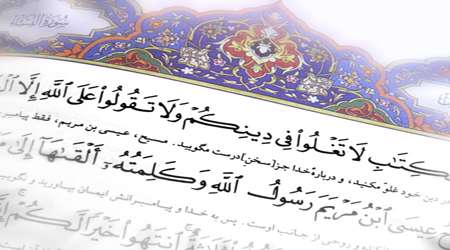 سورة النساء
لَا تَغْلُوا فِى دِينِكُمْ وَلَا تَقُولُوا عَلَى اللَّهِ إِلَّا
در دین خود غلو مکنید، و دربارهٔ خدا جز [سخن] درست مگویید. مسیح، عیسی بن مریم، فقط پیامبر
عِيسَى ابْنُ مَرْيَمَ رَسُولُ اللَّهِ وَكَلِمَتُهُ أَلْقَىٰهَا إِلَىٰ
و روحی از جانب اوست. پس به خدا و پیامبرانش ایمان بیاورید و نگویید
ثَلَٰثَةٌ انتَهُوا خَيْرًا لَّكُمْ